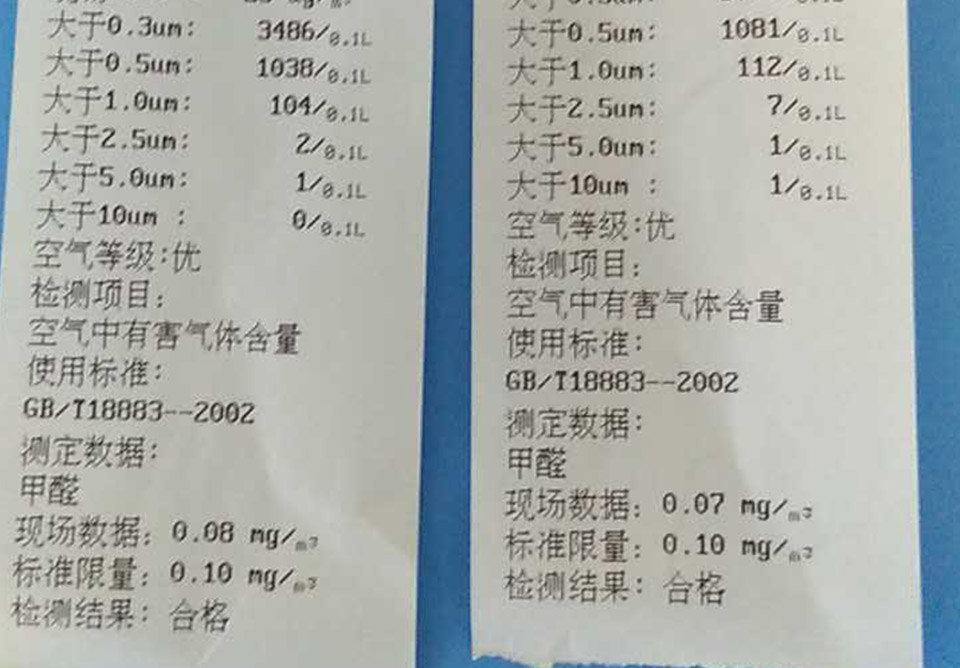 大于0.3um: 3486/0.1L
大于0.5um: 1038/0.1L
大于1.0um: 104/0.1L
大于2.5um: 2/0.1L
大于5.0um: 1/0.1L
大于10um : 0/0.1L
空气等级:优
检测项目:
空气中有害气体含量
使用标准:
GB/T18883--2002
测定数据:
甲醛
现场数据: 0.08 mg/m3
标准限量: 0.10 mg/m3
检测结果: 合格
大于0.5um: 1081/0.1L
大于1.0um: 112/0.1L
大于2.5um: 7/0.1L
大于5.0um: 1/0.1L
大于10um : 1/0.1L
空气等级:优
检测项目:
空气中有害气体含量
使用标准:
GB/T18883--2002
测定数据:
甲醛
现场数据: 0.07 mg/m3
标准限量: 0.10 mg/m3
检测结果: 合格